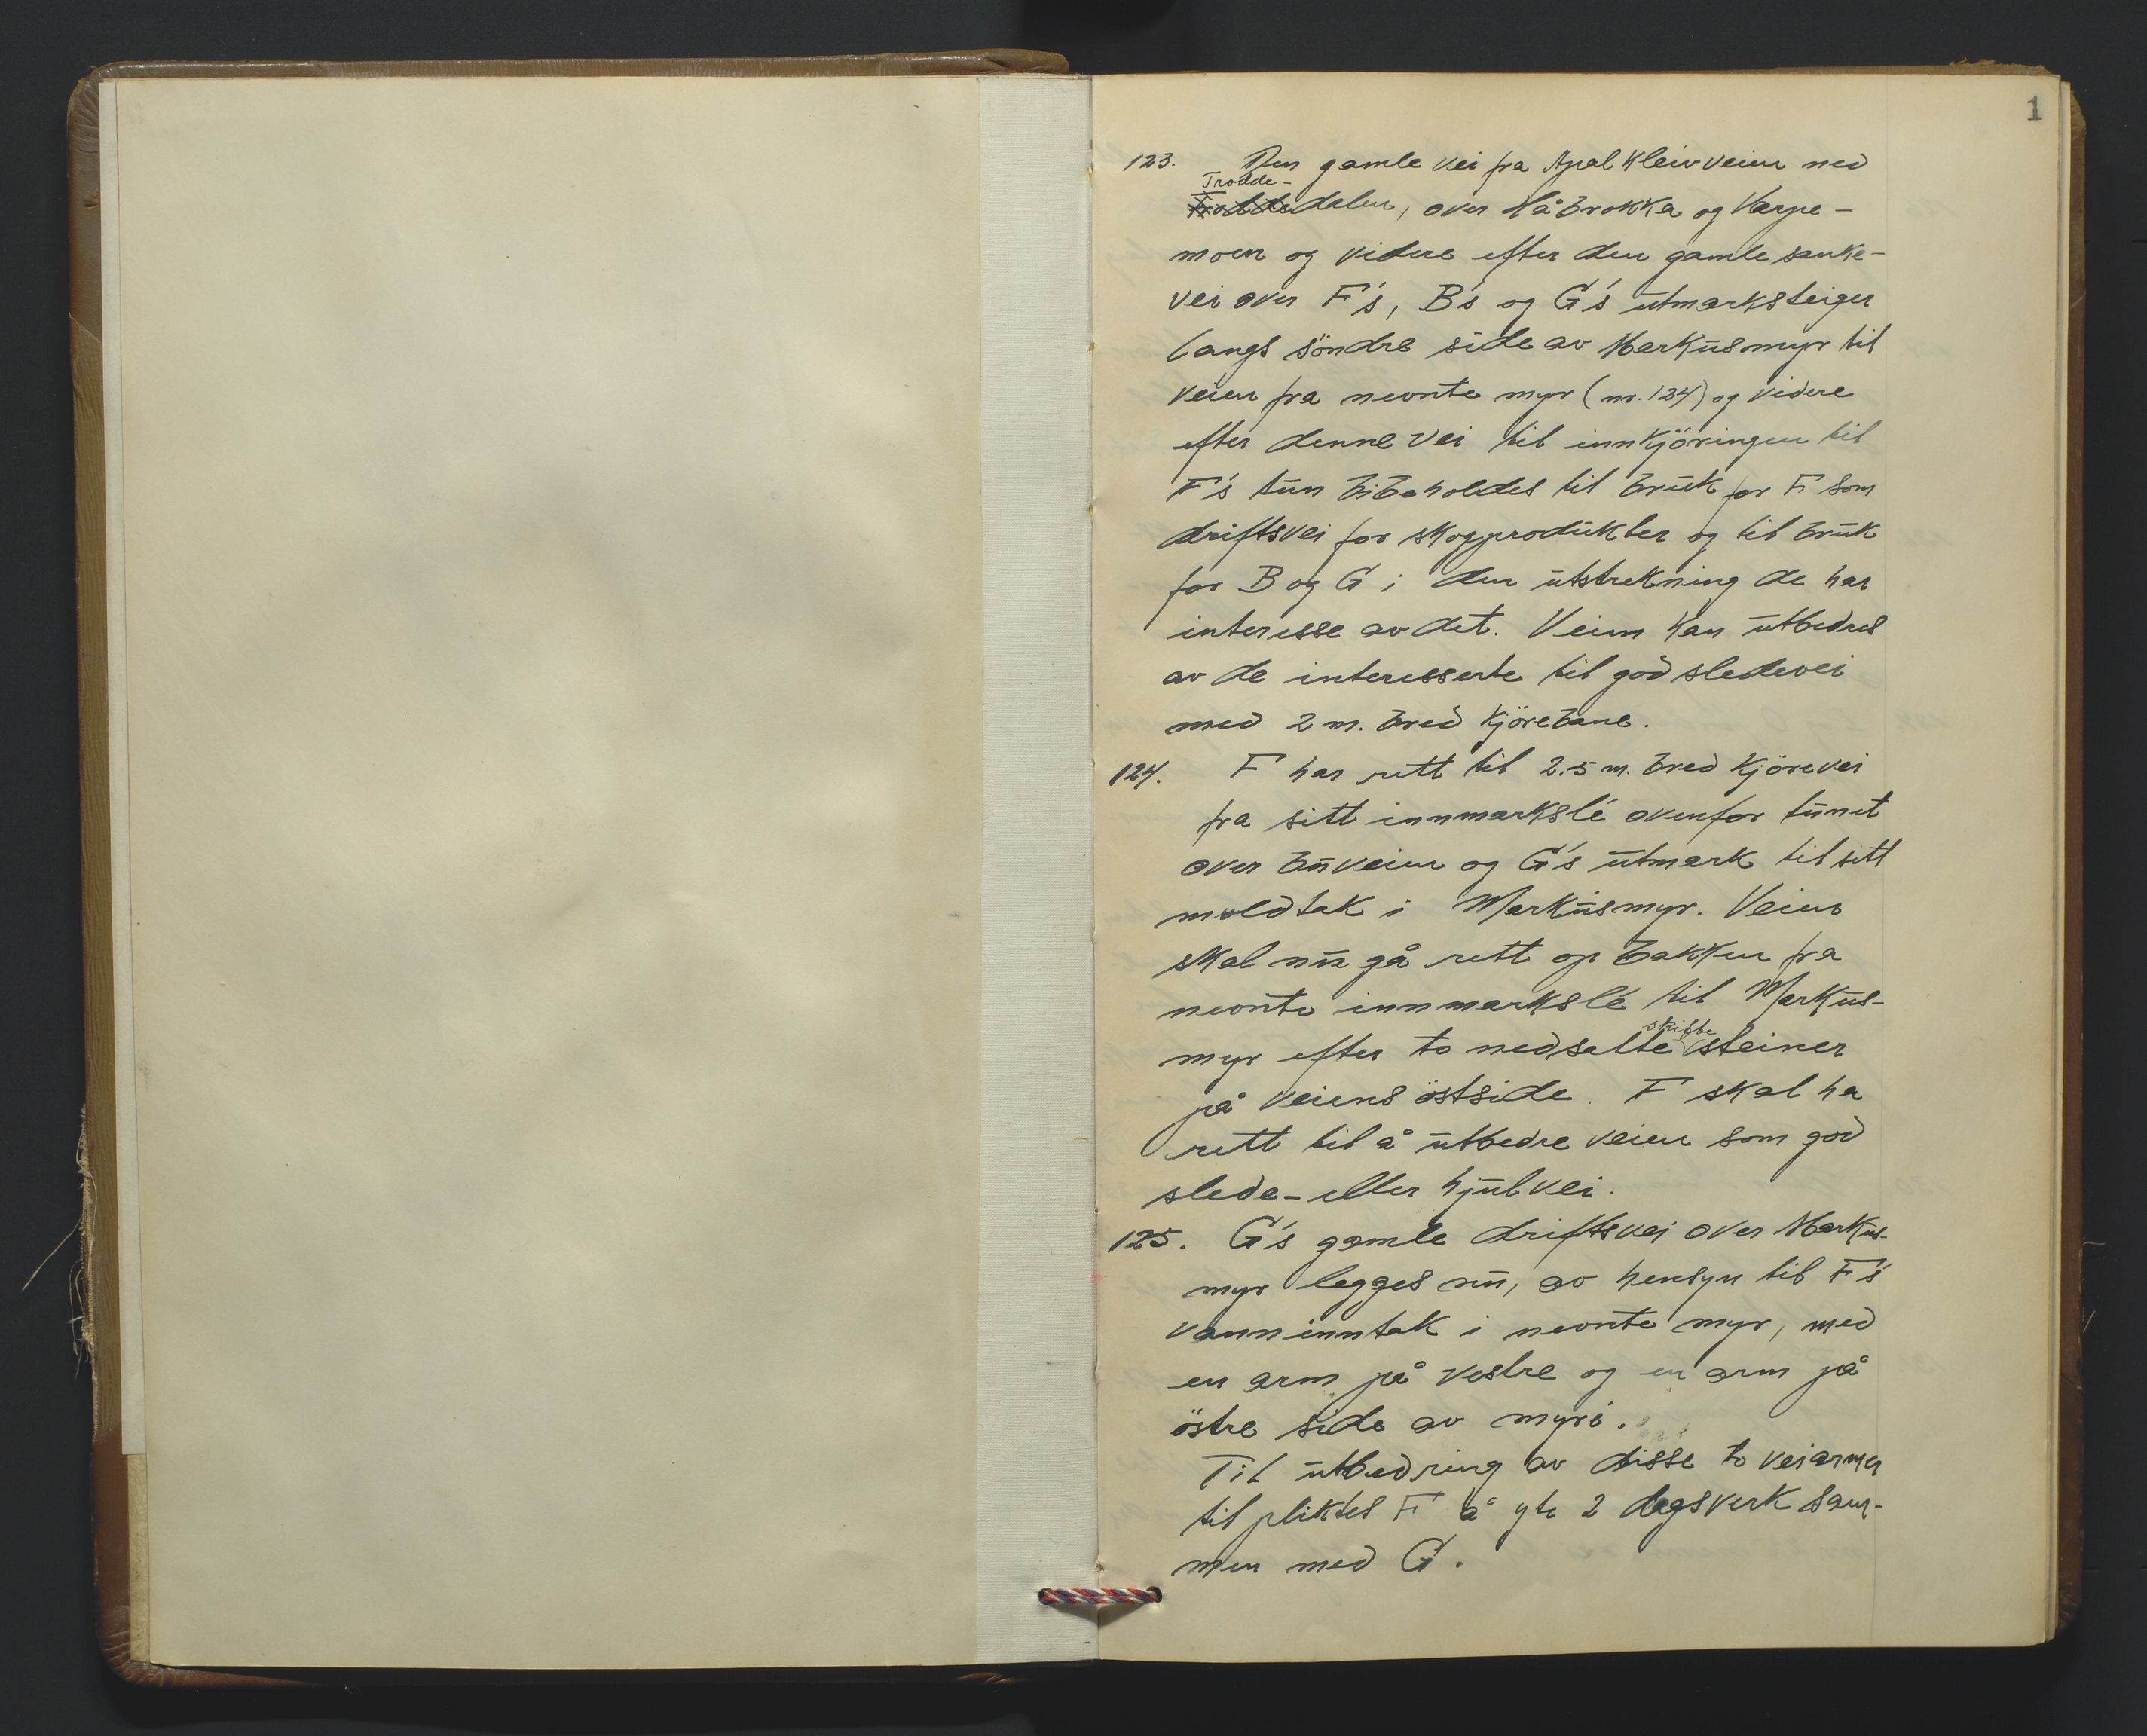 1
123. Den gamle vei fra Apalkleivveien ned
Trodde-
dalen, over Håbrokka og Varpe-
moen og videre efter den gamle sanke-
vei over F's, B's og G's utmarksteiger
langs söndre side av Markusmyr til
veien fra nevnte myr (nr. 124) og videre
efter denne vei til innkjöringen til
F's tun bibeholdes til bruk for F som
driftsvei for skogprodukter og til bruk
for B og G i den utstrekning de har
interesse av det. Veien kan utbedres
av de interesserte til god sledevei
med 2 m. bred kjörebane.
124. F har rett til 2.5 m. bred kjörevei
fra sitt innmarkslé ovenfor tunet
over buveien og G's utmark til sitt
moldtak i Markusmyr. Veien
skal nu gå rett op bakken fra
nevnte innmarkslé til Markus-
myr efter to nedsatte skifte steiner
på veiens östside. F skal ha
rett til å utbedre veien som god
slede- eller hjulvei.
125. G's gamle driftsvei over Markus-
myr legges nu, av hensyn til F's
vanninntak i nevnte myr, med
en arm på vestre og en arm på
östre side av myri.
Til utbedring av disse to veiarmer
tilpliktes F å yte 2 dagsverk sam-
men med G.